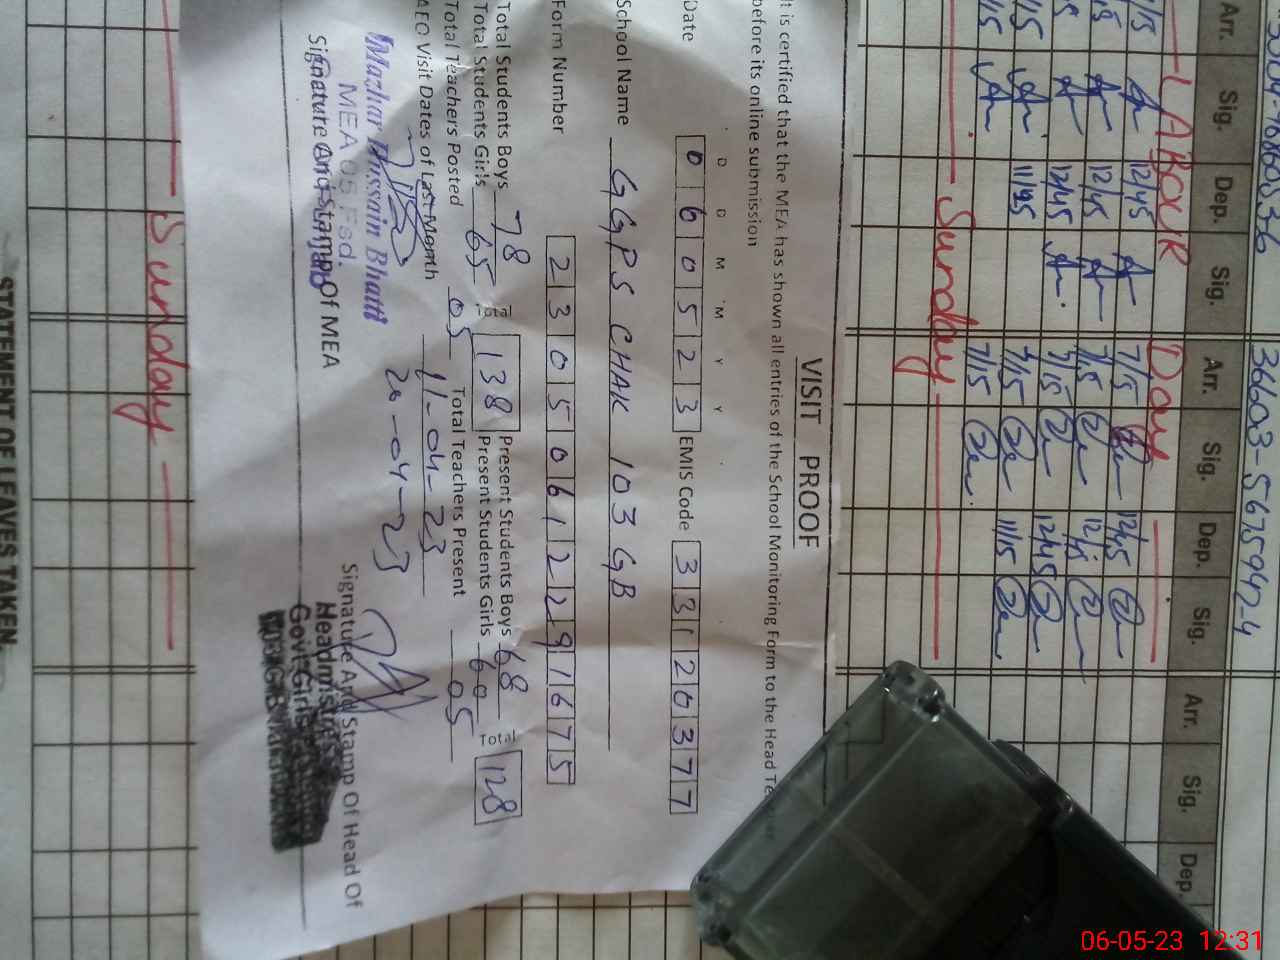 36603-5675947-4
Arr. Sig. Dep. Sig. Arr. Sig. Dep. Sig. Arr. Sig. Dep
LABOUR Day
7/15 12/45 7/15 12/45
7/15 12/45 7/15
7/15 12/45 7/15 12/45
7/15 11/45 7/15 11/15
7/15 7/15
Sunday
VISIT PROOF
It is certified that the MEA has shown all entries of the School Monitoring Form to the Head
before its online submission
D D M M Y Y
Date 0 6 0 5 2 3 EMIS Code 3 3 1 2 0 3 7 7
School Name GGPS CHAK 103 GB
Form Number 2 3 0 5 0 6 1 2 2 9 1 6 7 5
Total Students Boys 78 Total 138 Present Students Boys 68 Total 128
Total Students Girls 65 Present Students Girls 60
Total Teachers Posted 05 Total Teachers Present 05
AEO Visit Dates of Last Month 11-04-23
20-04-23
Mazhar Hussain Bhatti
MEA 05 Fsd.
Signature And Stamp Of MEA
Signature And Stamp Of Head Of
Headmistress
Govt Girls
Sunday
STATEMENT OF LEAVES TAKEN
06-05-23 12:31